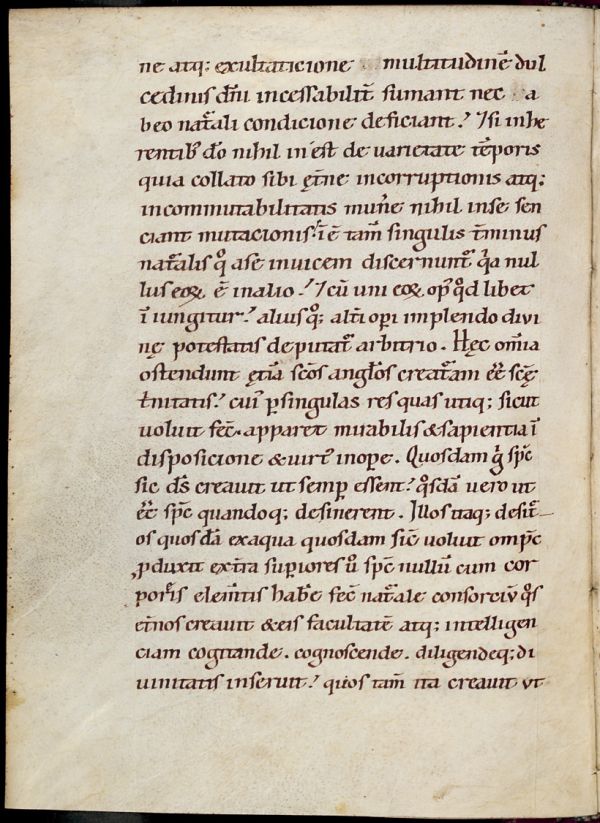 ne atq; exultaticione multitudinē dul
cedinis dñi incessabilit̄ sumant nec a
b eo nat̄ali condicione deficiant. Ysi inhe
rentib; dõ nihil inest de varietate tēporis
quia collato sibi et̄ne incorruptionis atq;
incommutabilitatis mun̄e nihil inse sen
ciant mutacionis. ĩ ē tam̄ singulis t̄minus
nat̄alis qͥ ase invicem discernunt᷑ qͥa nul
lus eoꝝ ē inalio. 7 cū uni eoꝝ op᷒ qͥd libet
ĩ iungitur. alius qͦ; alt̄i op̄i implendo divi
nę potestatis deputat᷑ arbitrio. Hęc om̄ia
ostendunt ęt̄ia sc̄os angl̄os creat᷑am ee᷑ sc̄ę
t̄nitatis. cui᷒ ꝑ singulas res quas utiq; sicut
voluit fec̄. apparet mirabilis & sapientia ĩ
disposicione & virt᷒ inoꝑe. Quosdam g͛ sp̄c
sic d̄s creavit ut semꝑ essent. qͦsdā vero ut
ee᷑ sp̄c quandoq; desinerent. Illos itaq; desit᷑
os quosdā exaqua quosdam sic̄ voluit om̄p̄c
ꝓduxit ex t̄ra superiores ū sp̄c nullū cum cor
poreis elem̄tis hab̄e fec̄ nat᷑ale consorciū qͦs
et̄nos creavit & eis facultatē atq; intelligen
ciam cogitande. cognoscende. diligendeq; di
vinitatis inseruit. quos tam̄ ita creavit vt